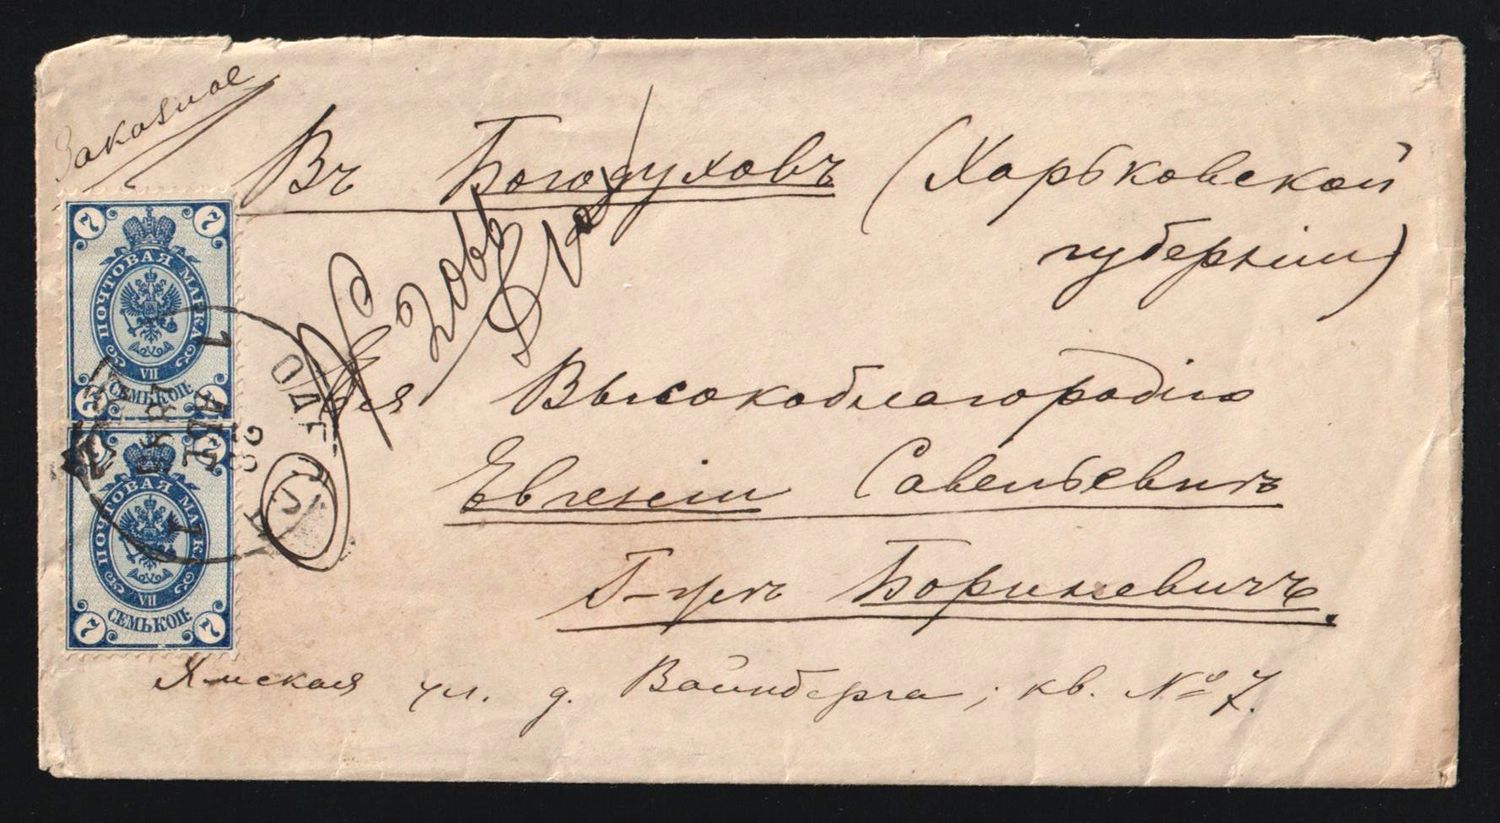 Заказное
Въ Богодуховъ (Харьковской
губерніи)
№ 2066
Высокоблагородію
Евгенію Савельевичъ
Г-нъ Бориневичъ.
Ямская ул. д. Вайнберга; кв. № 7.
7 7
ПОЧТОВАЯ МАРКА
VII
СЕМЬ КОП.
7 7
ПОЧТОВАЯ МАРКА
VII
СЕМЬ КОП.
7 7
1
28
1